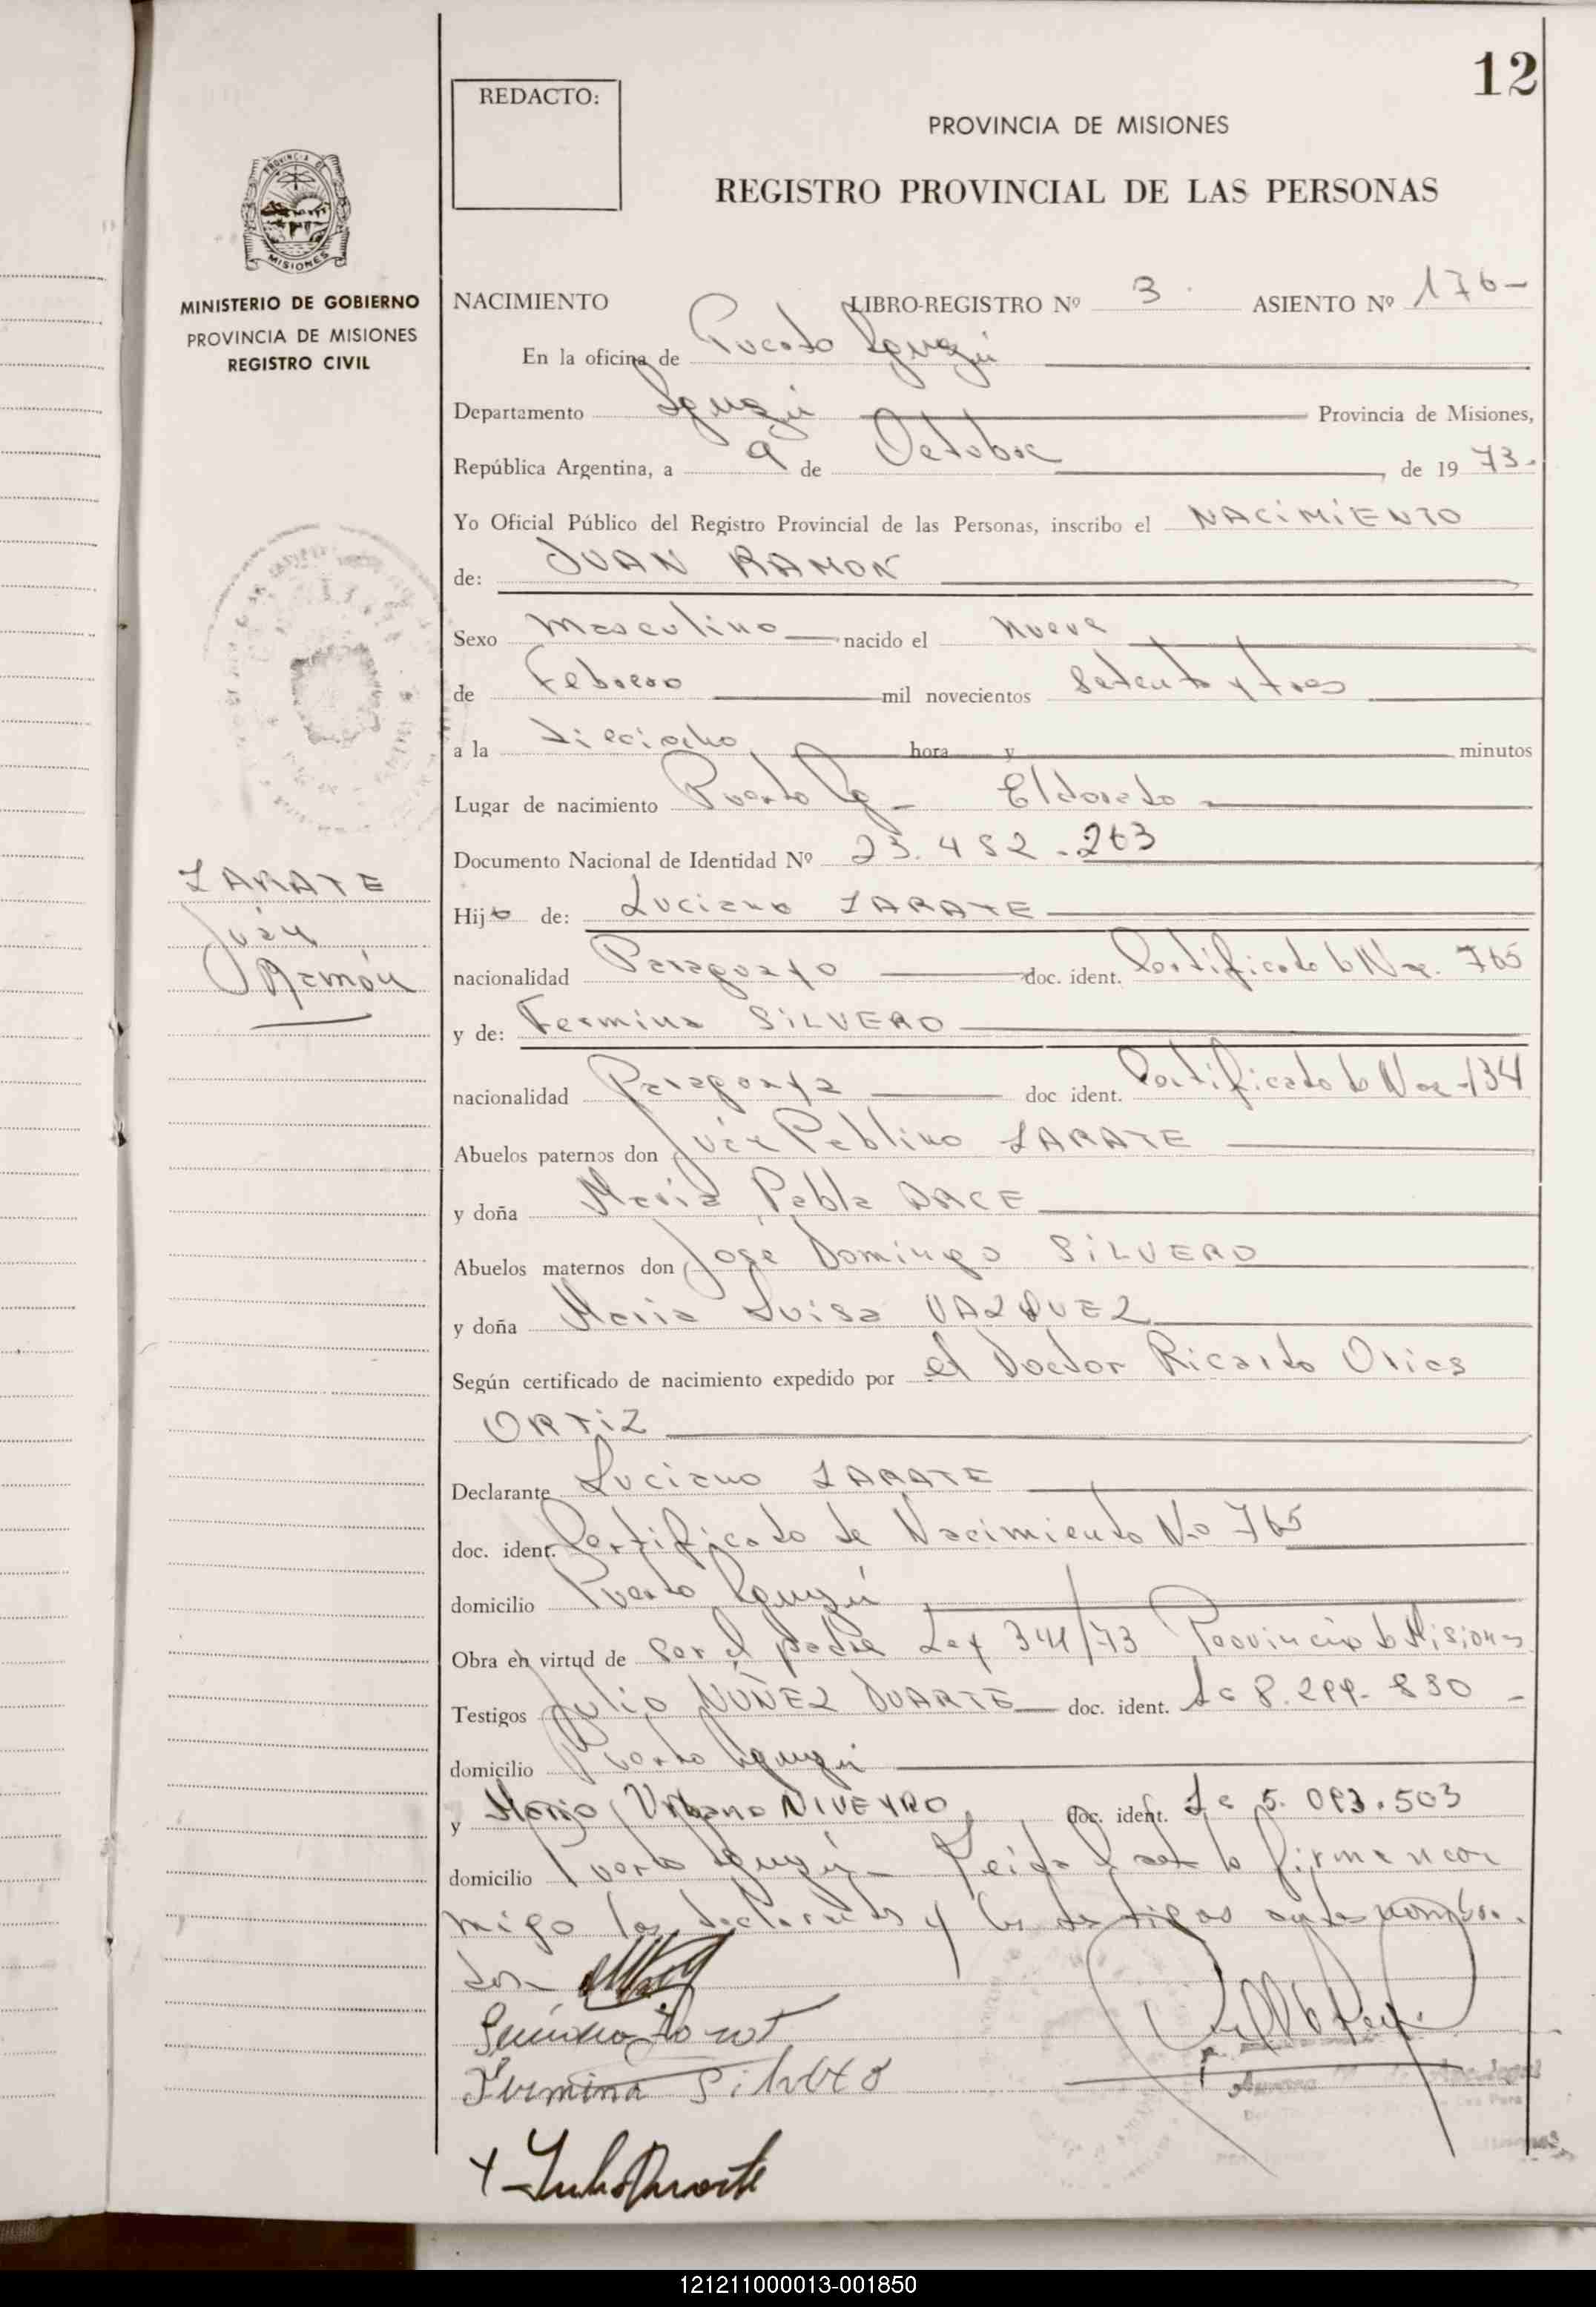 12
REDACTO:
PROVINCIA DE MISIONES
REGISTRO PROVINCIAL DE LAS PERSONAS
MINISTERIO DE GOBIERNO
PROVINCIA DE MISIONES
REGISTRO CIVIL
ZARATE
Juán
Ramón
NACIMIENTO LIBRO-REGISTRO Nº 3 ASIENTO Nº 176-
En la oficina de Puerto Iguazú
Departamento Iguazú Provincia de Misiones,
República Argentina, a 9 de Octubre, de 1973.
Yo Oficial Público del Registro Provincial de las Personas, inscribo el NACIMIENTO
de: JUAN RAMON
Sexo Masculino nacido el nueve
de Febrero mil novecientos setenta y tres
a la dieciocho hora y minutos
Lugar de nacimiento Puerto Ig - Eldorado
Documento Nacional de Identidad Nº 23.482.263
Hijo de: Luciano ZARATE
nacionalidad Paraguayo doc. ident. Certificado de Nac. 765
y de: Fermina SILVERO
nacionalidad Paraguaya doc ident. Certificado de Nac - 134
Abuelos paternos don Juán Pablino ZARATE
y doña María Pabla
Abuelos maternos don José Domingo SILVERO
y doña María Luisa VAZQUEZ
Según certificado de nacimiento expedido por el Doctor Ricardo
ORTIZ
Declarante Luciano ZARATE
doc. ident. Certificado de Nacimiento No 765
domicilio Puerto Iguazú
Obra en virtud de ser el padre Ley 341/73 Provincia de Misiones
Testigos Julio NUÑEZ DUARTE doc. ident. 8.299.830 -
domicilio Puerto Iguazú
y Mario Urbano NIVEYRO doc. ident. 5.093.503
domicilio Puerto Iguazú - Leida el acta la firman con
migo los declarantes y los testigos antes nombra.
dos-
Fermina Silvero
Julio Duarte
121211000013-001850